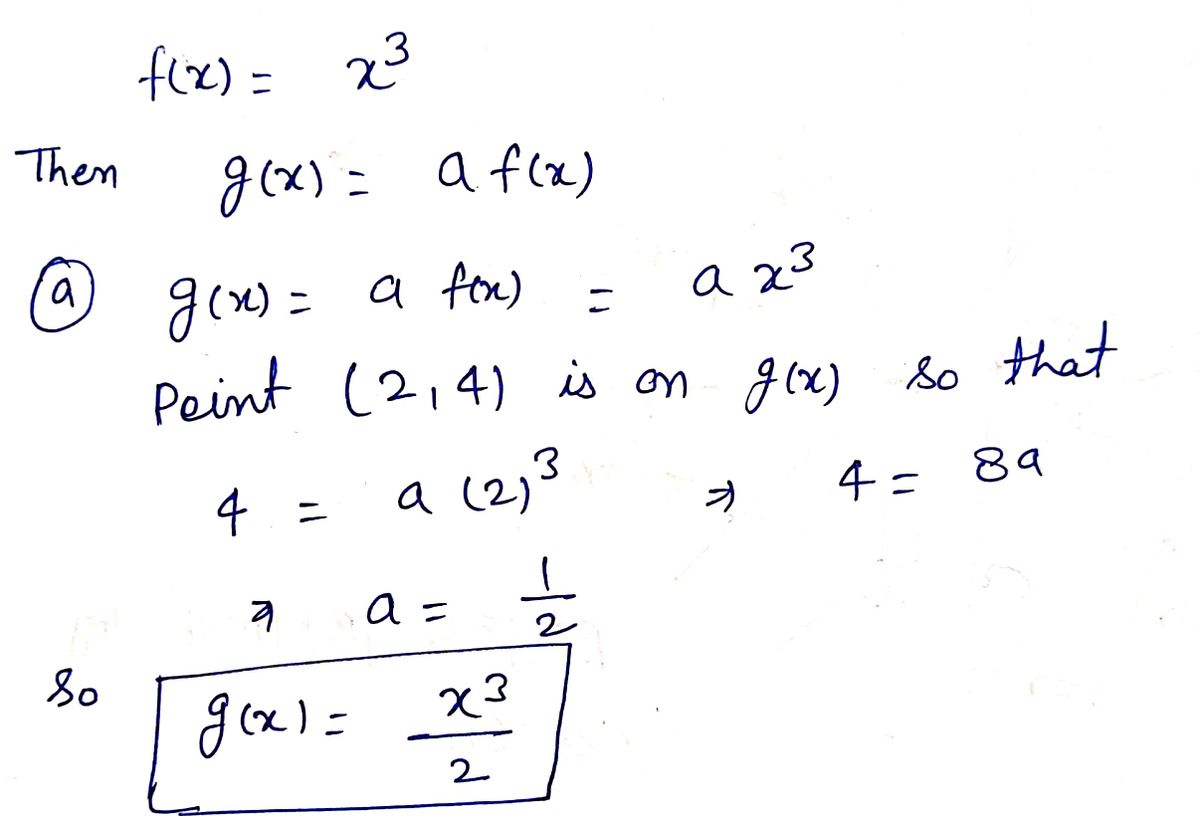 f(x) = x³
Then g(x) = a f(x)
ⓐ g(x) = a f(x) = a x³
Point (2,4) is on g(x) so that
4 = a (2)³ ⇒ 4 = 8a
⇒ a = 1/2
So g(x) = x³/2